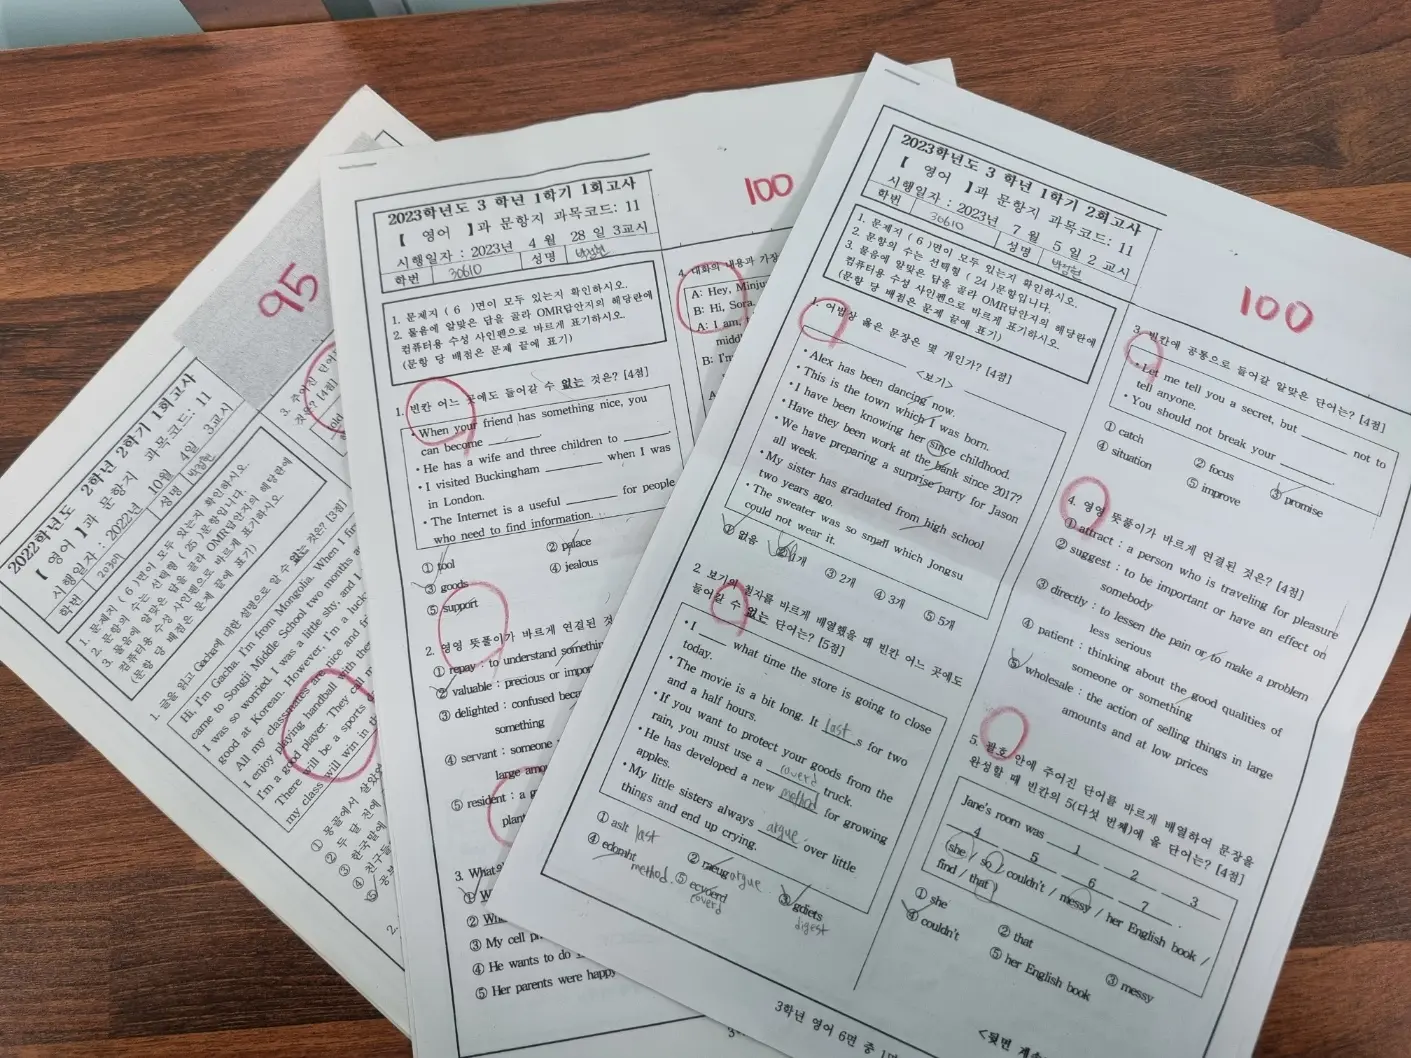 95
2022학년도 2학년 2학기 1회고사
【 영어 】과 문항지 과목코드: 11
시행일자 : 2022년 10월 4일 3교시
학번
성명 박정현
1. 문제지 ( 6 )면이 모두 있는지 확인하시오.
2. 문항의 수는 선택형 ( 25 )문항입니다.
3. 물음에 알맞은 답을 골라 OMR답안지의 해당란에
컴퓨터용 수성 사인펜으로 바르게 표기하시오.
(문항 당 배점은 문제 끝에 표기)
1. 글을 읽고 Gacha에 대한 설명으로 알 수 없는 것은? [3점]
Hi, I'm Gacha. I'm from Mongolia. When I
came to Songji Middle School two months
I was so worried. I was a little shy, and I
good at Korean. However, I'm a luck
All my classmates are nice and
I enjoy playing handball with the
I'm a good player. They call
There will be a sports
my class will win in
① 몽골에서 살았었
② 두 달 전에
③ 한국말에
④ 친구들
⑤
2.
3. 주어진 단어
것은? [4점]
old
100
2023학년도 3 학년 1학기 1회고사
【 영어 】과 문항지 과목코드: 11
시행일자 : 2023년 4 월 28 일 3교시
학번 30610 성명 박정현
1. 문제지 ( 6 )면이 모두 있는지 확인하시오.
2. 물음에 알맞은 답을 골라 OMR답안지의 해당란에
컴퓨터용 수성 사인펜으로 바르게 표기하시오.
(문항 당 배점은 문제 끝에 표기)
1. 빈칸 어느 곳에도 들어갈 수 없는 것은? [4점]
• When your friend has something nice, you
can become ________.
• He has a wife and three children to ______.
• I visited Buckingham ________ when I was
in London.
• The Internet is a useful ________ for people
who need to find information.
① tool ② palace
③ goods ④ jealous
⑤ support
2. 영영 뜻풀이가 바르게 연결된 것
① repay : to understand something
② valuable : precious or impor
③ delighted : confused beca
something
④ servant : someone
large amo
⑤ resident : a
plant
3. What
① W
② Wh
③ My cell p
④ He wants to do
⑤ Her parents were happy
4. 대화의 내용과 가장
A: Hey, Minju
B: Hi, Sora.
A: I am,
middl
B: I'm
A
100
2023학년도 3 학년 1학기 2회고사
【 영어 】과 문항지 과목코드: 11
시행일자 : 2023년 7 월 5 일 2 교시
학번 30610 성명 박정현
1. 문제지 ( 6 )면이 모두 있는지 확인하시오.
2. 문항의 수는 선택형 ( 24 )문항입니다.
3. 물음에 알맞은 답을 골라 OMR답안지의 해당란에
컴퓨터용 수성 사인펜으로 바르게 표기하시오.
(문항 당 배점은 문제 끝에 표기)
1. 어법상 옳은 문장은 몇 개인가? [4점]
<보기>
• Alex has been dancing now.
• This is the town which I was born.
• I have been knowing her since childhood.
• Have they been work at the bank since 2017?
• We have preparing a surprise party for Jason
all week.
• My sister has graduated from high school
two years ago.
• The sweater was so small which Jongsu
could not wear it.
① 없음 ② 1개 ③ 2개 ④ 3개 ⑤ 5개
2. 보기의 철자를 바르게 배열했을 때 빈칸 어느 곳에도
들어갈 수 없는 단어는? [5점]
• I ____ what time the store is going to close
today.
• The movie is a bit long. It last s for two
and a half hours.
• If you want to protect your goods from the
rain, you must use a coverd truck.
• He has developed a new method for growing
apples.
• My little sisters always argue over little
things and end up crying.
① aslt last ② raeug argue ③ gdiets digest
④ edomht method ⑤ ecvoerd coverd
3. 빈칸에 공통으로 들어갈 알맞은 단어는? [4점]
• Let me tell you a secret, but ________ not to
tell anyone.
• You should not break your ________.
① catch ② focus ③ promise
④ situation ⑤ improve
4. 영영 뜻풀이가 바르게 연결된 것은? [4점]
① attract : a person who is traveling for pleasure
② suggest : to be important or have an effect on
somebody
③ directly : to lessen the pain or to make a problem
less serious
④ patient : thinking about the good qualities of
someone or something
⑤ wholesale : the action of selling things in large
amounts and at low prices
5. 괄호 안에 주어진 단어를 바르게 배열하여 문장을
완성할 때 빈칸의 5(다섯 번째)에 올 단어는? [4점]
Jane's room was 1 2 3
4 5 6 7 .
( she / so / couldn't / messy / her English book /
find / that )
① she ② that ③ messy
④ couldn't ⑤ her English book
3학년 영어 6면 중 1면
<뒷면 계속